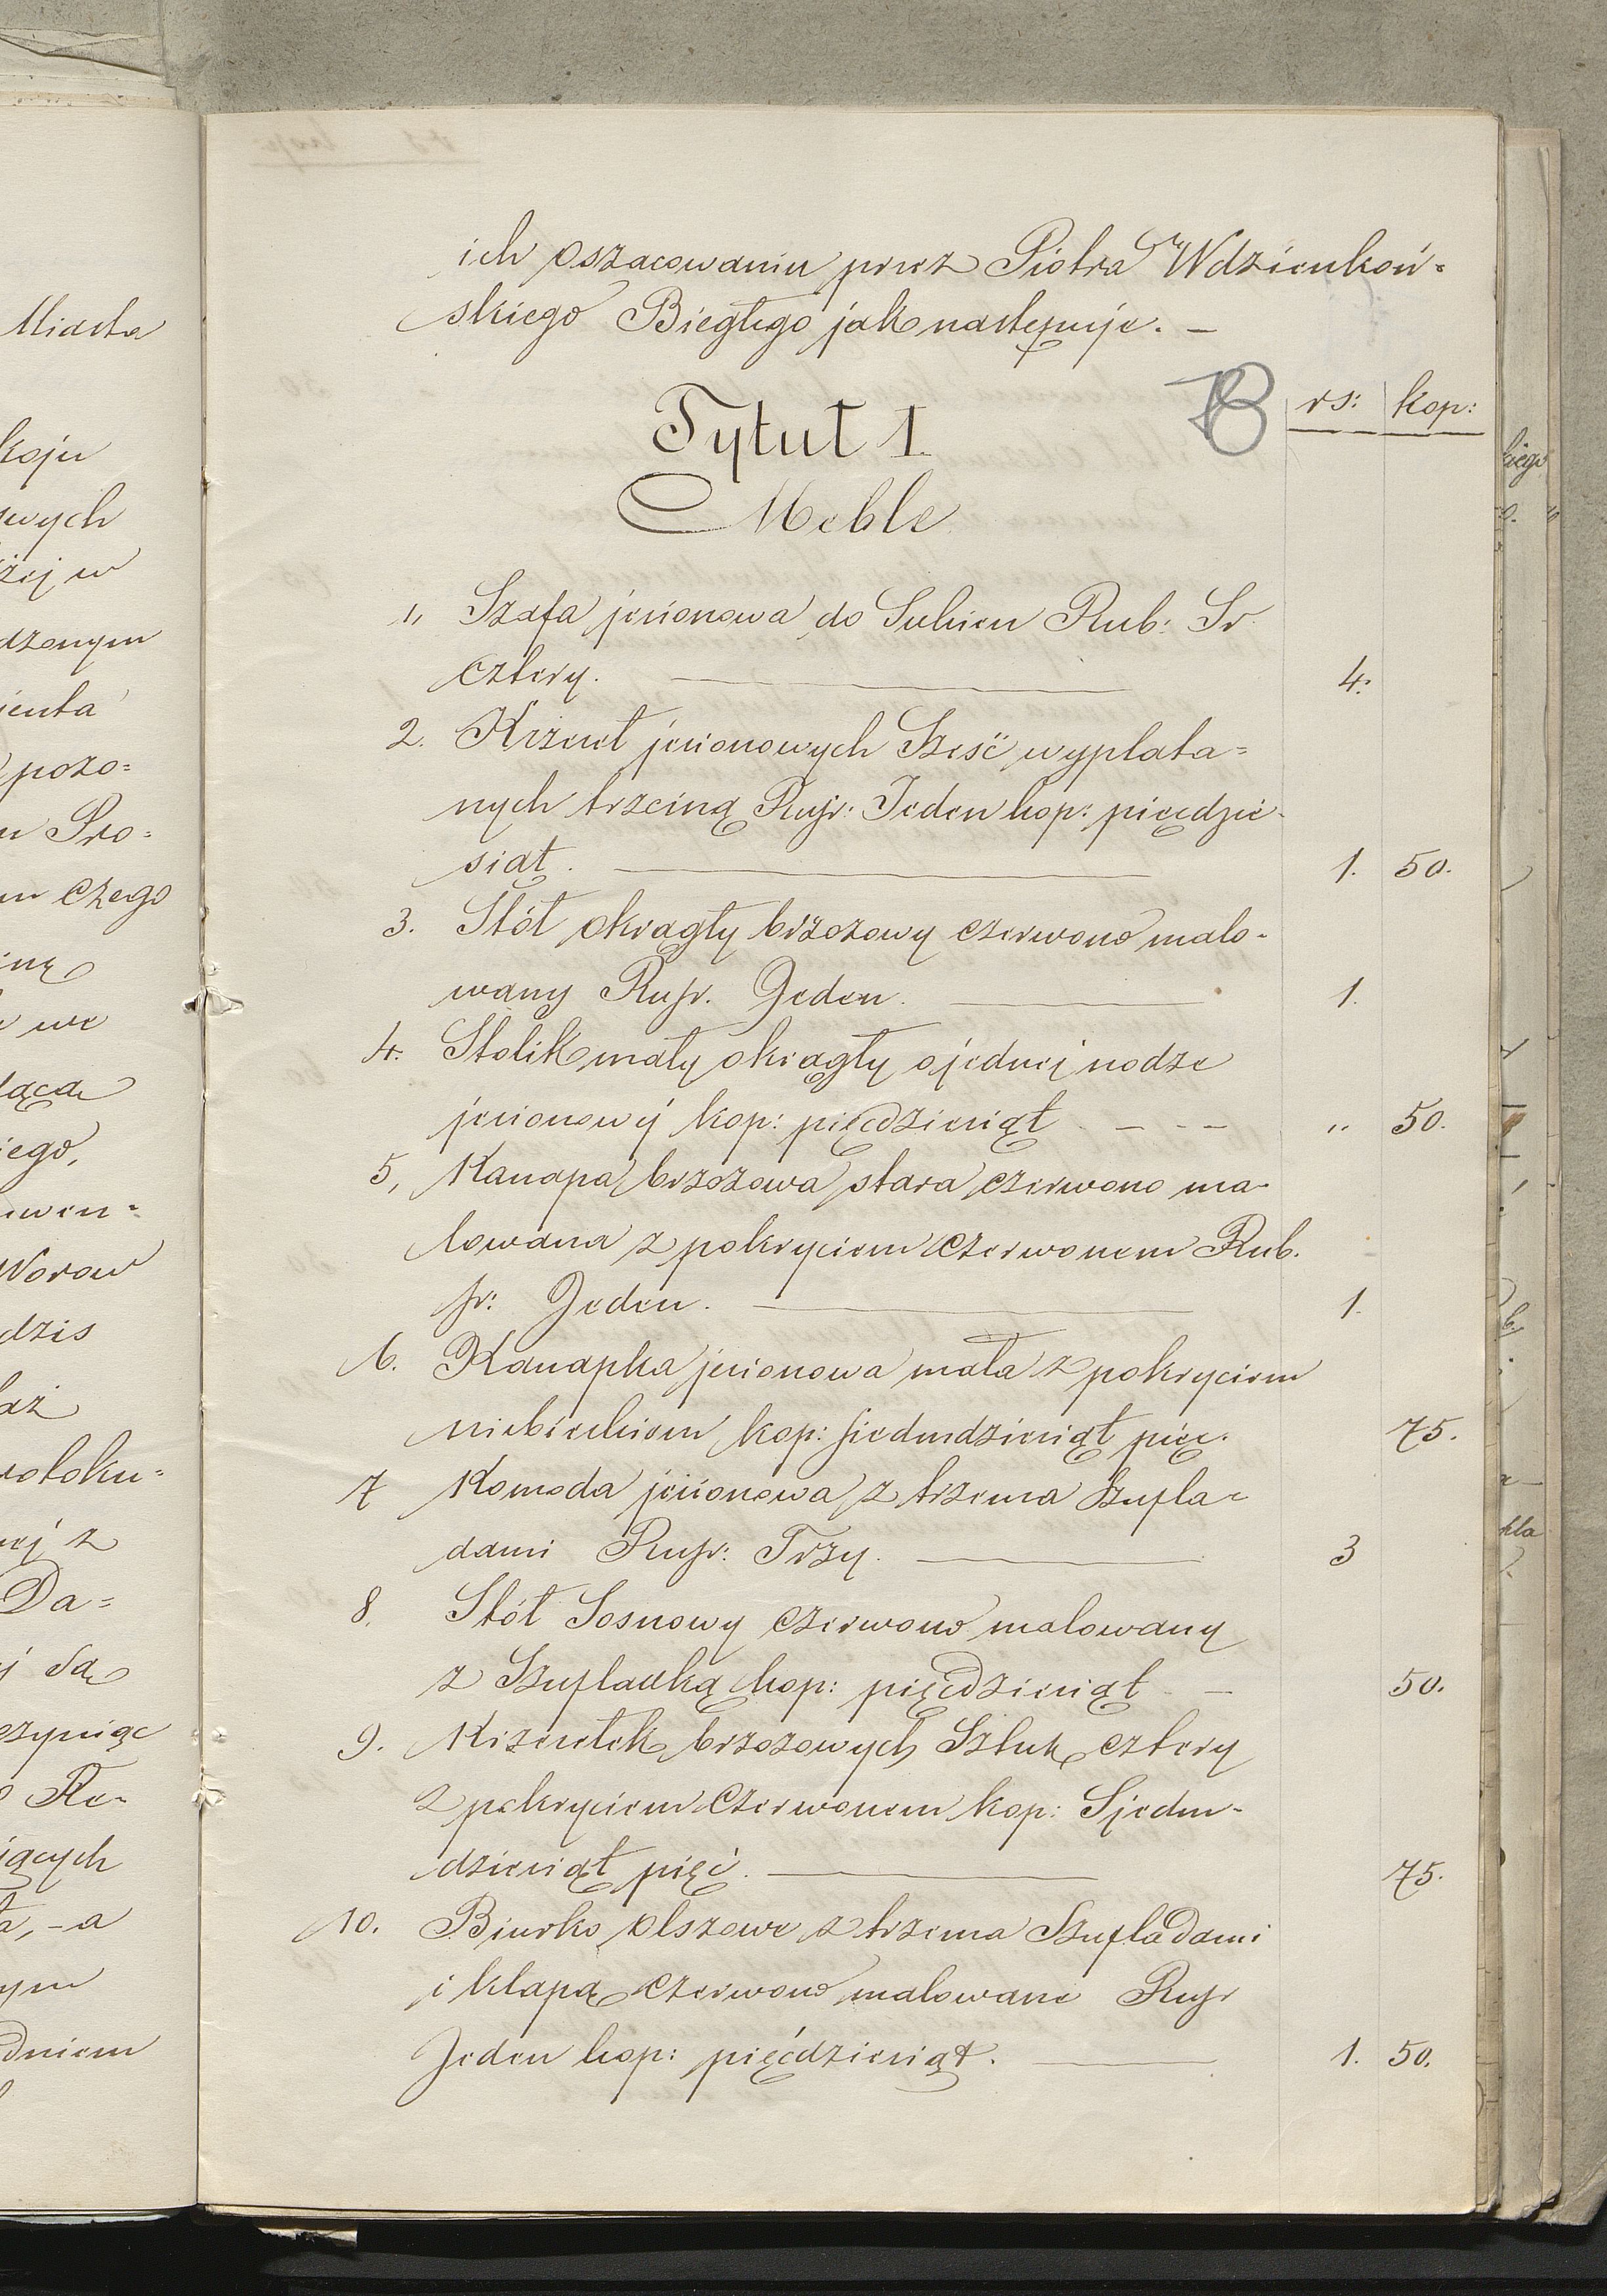 ich oszacowaniu przez Piotra Wdzienkoń=
skiego Biegłego jak następuje. —
rs: kop:
Tytuł 1
Meble
1,, Szafa jesionowa do Sukien Rub: Sr
cztery. 4.
2. Krzeseł jesionowych Sześć wyplata=
nych trzciną Rusr: Jeden kop: pięćdzie-
siąt. 1. 50.
3. Stół okrągły brzozowy czerwono malo-
wany Rusr. Jeden. 1.
4. Stolik mały okrągły o jednej nodze
jesionowy kop: pięćdziesiąt. — - — " 50.
5, Kanapa brzozowa stara czerwono ma-
lowana z pokryciem czerwonem Rub.
sr: Jeden. 1.
6. Kanapka jesionowa mała z pokryciem
niebieskiem kop: siedmdziesiąt pięć. 75.
7 Komoda jesionowa z trzema Szufla-
dami Rusr: Trzy. 3
8. Stół Sosnowy czerwono malowany
z Szufladką kop: pięćdziesiąt — 50.
9. Krzesełek brzozowych Sztuk cztery
z pokryciem czerwonem kop: Sjedm-
dziesiąt pięć. 75.
10. Biurko olszowe z trzema Szufladami
i klapą czerwono malowane Rusr
Jeden kop: pięćdziesiąt. 1. 50.
Miasta
koju
wych
żej w
dzonym
pozo=
Pro=
czego
we
iego,
Worow
dzis
z
Da=
Są
Re-
ących
a
dniem